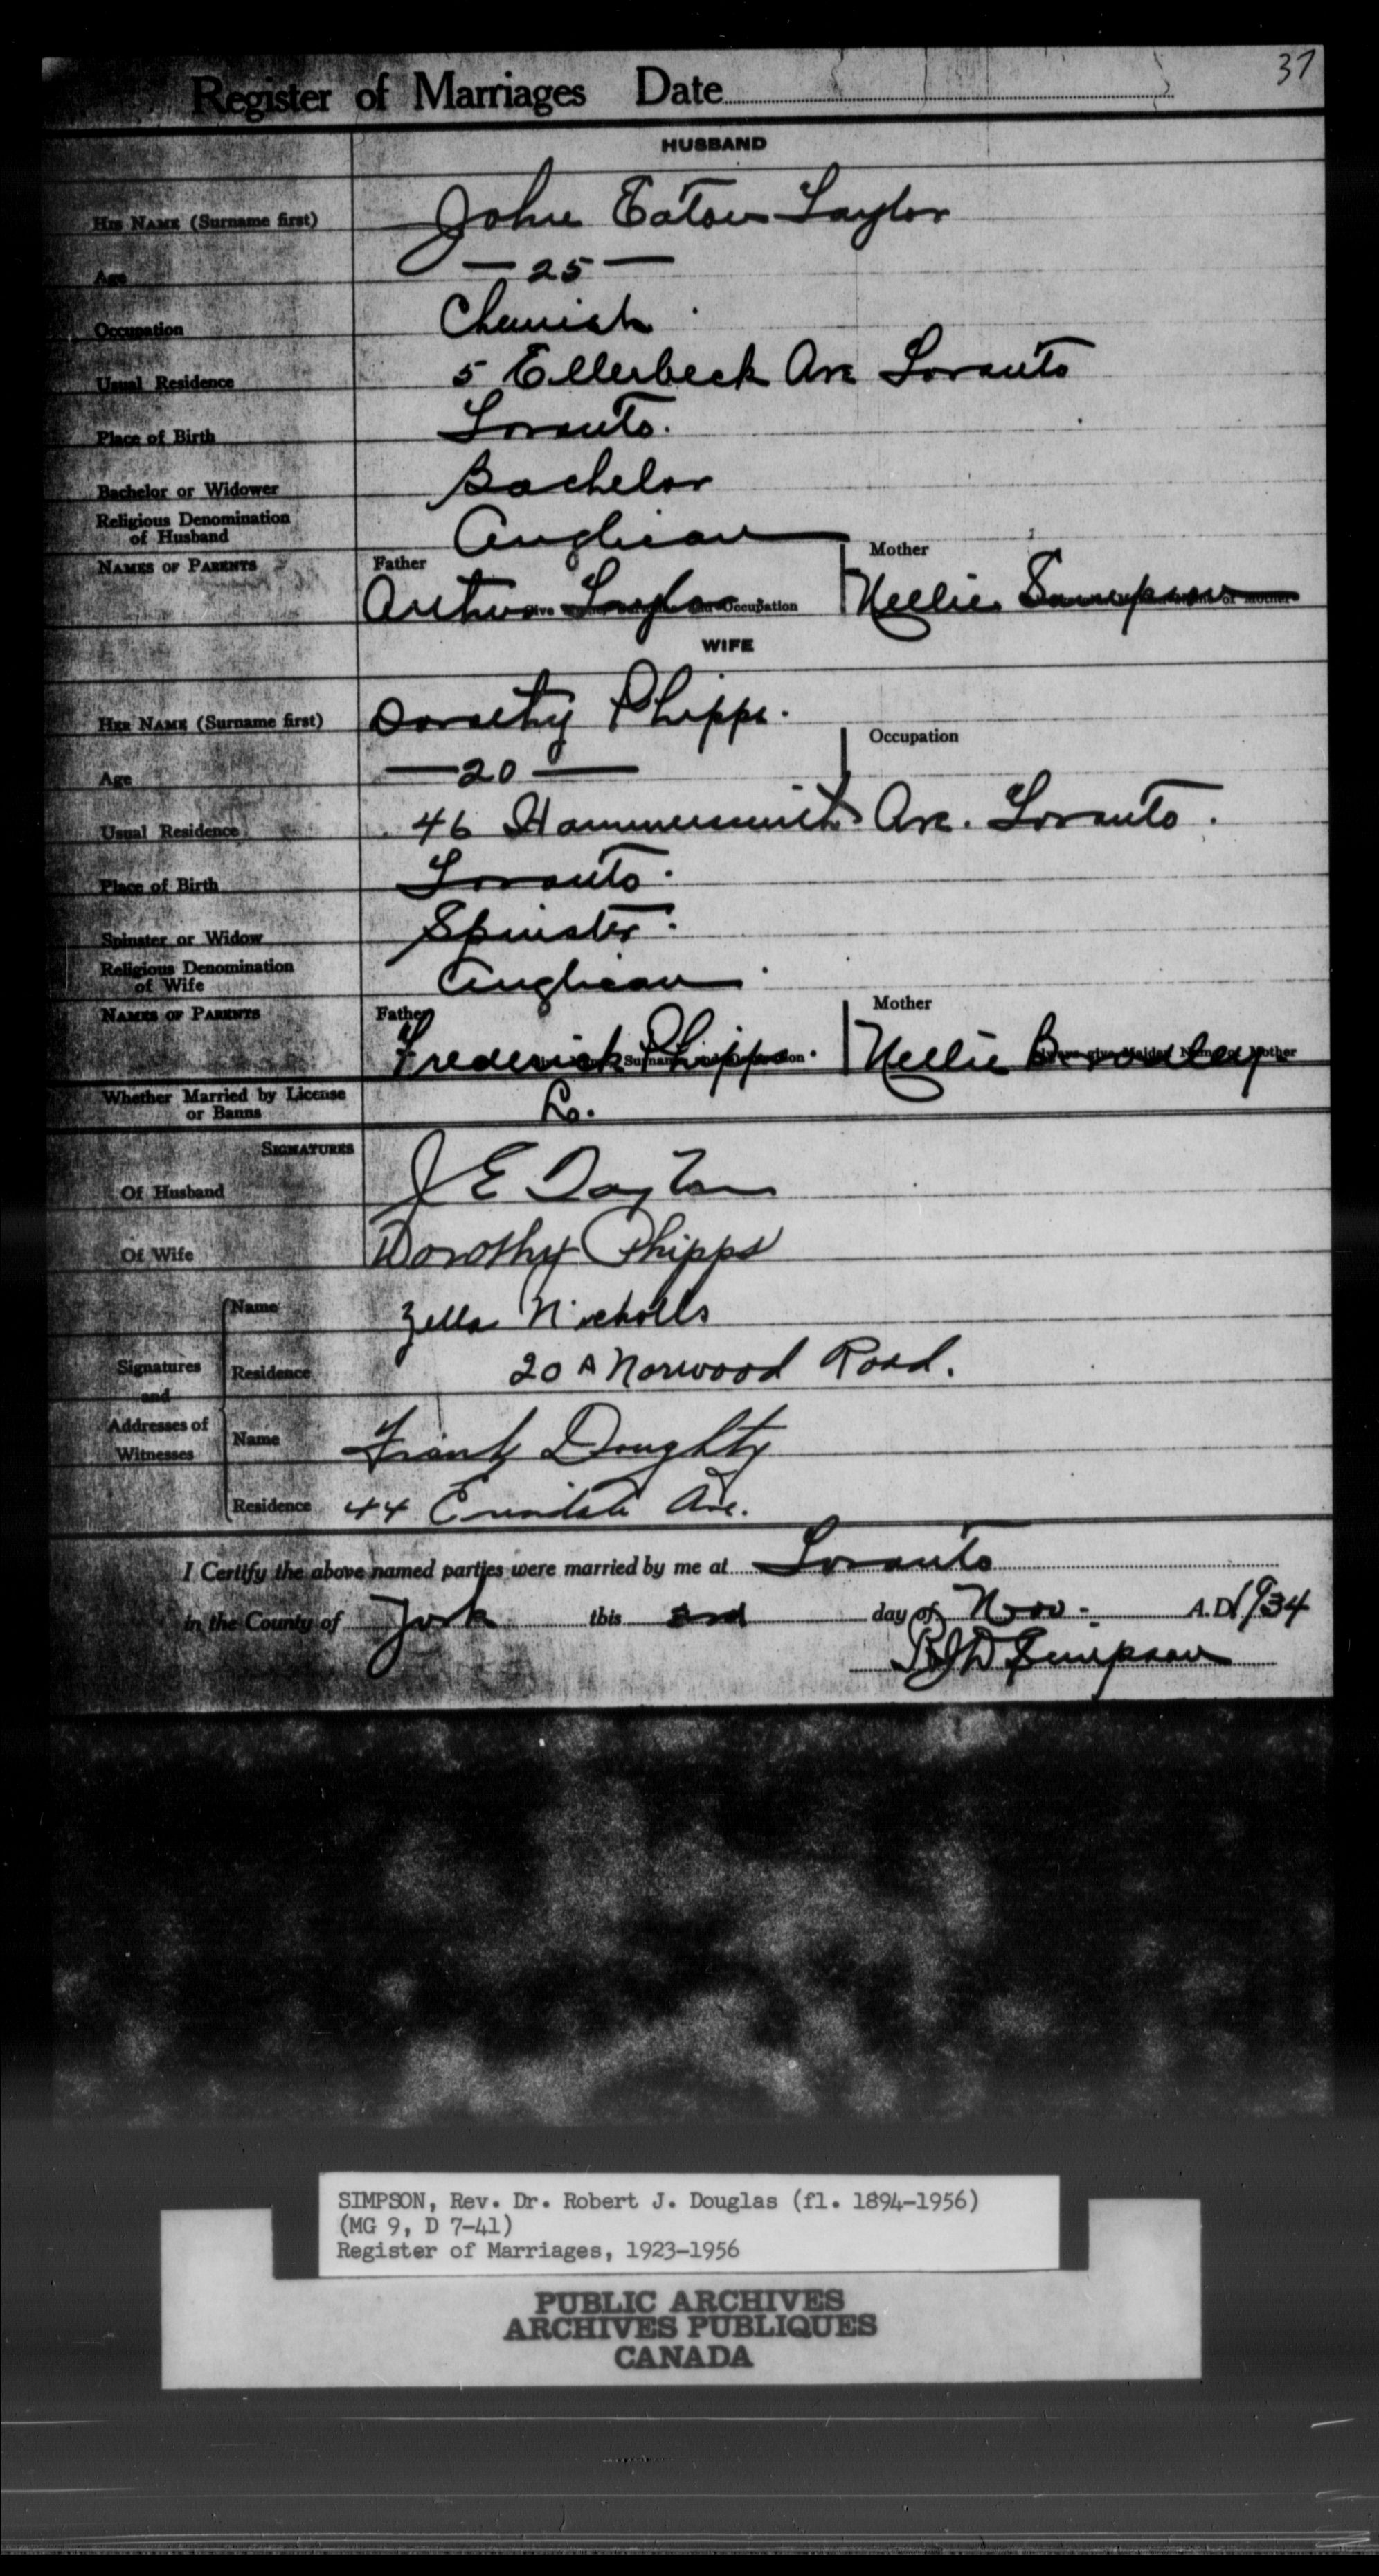 37
Register of Marriages Date
HUSBAND
HIS NAME (Surname first) John Eaton Taylor
Age — 25 —
Occupation Chemist
Usual Residence 5 Ellerbeck Ave Toronto
Place of Birth Toronto.
Bachelor or Widower Bachelor
Religious Denomination of Husband Anglican
NAMES OF PARENTS Father Mother
Arthur Taylor Occupation Nellie Sampson of Mother
WIFE
HER NAME (Surname first) Dorothy Phipps.
Occupation
Age — 20 —
Usual Residence 46 Hammersmith Ave. Toronto.
Place of Birth Toronto.
Spinster or Widow Spinster.
Religious Denomination of Wife Anglican
NAMES OF PARENTS Father Mother
Frederick Phipps. Nellie Brodley
Whether Married by License or Banns L.
SIGNATURES
Of Husband J E Taylor
Of Wife Dorothy Phipps
Name Zella Nicholls
Signatures and Residence 20 A Norwood Road.
Addresses of Witnesses Name Frank Doughty
Residence 44 Erindale Ave.
I Certify the above named parties were married by me at Toronto
in the County of York this 3rd day of Nov. A.D. 1934
R J D Simpson
SIMPSON, Rev. Dr. Robert J. Douglas (fl. 1894-1956)
(MG 9, D 7-41)
Register of Marriages, 1923-1956
PUBLIC ARCHIVES
ARCHIVES PUBLIQUES
CANADA